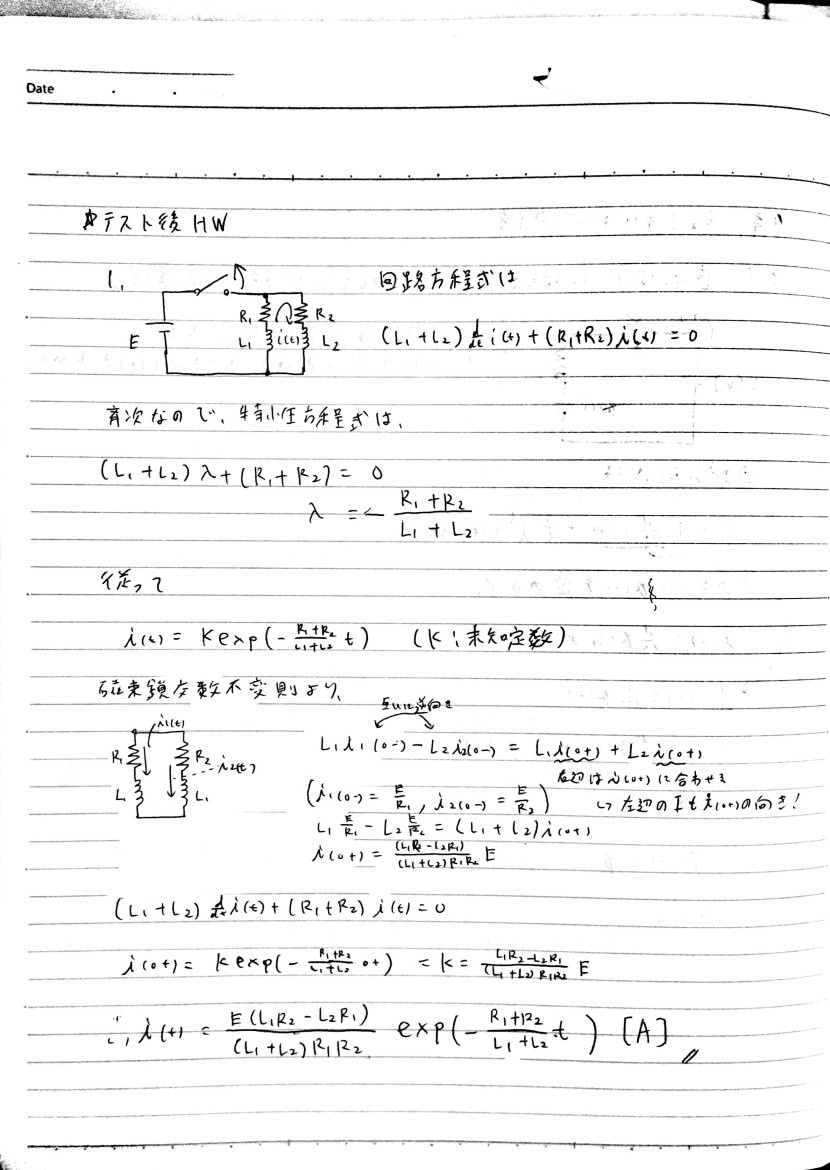 Date
☆テスト後 HW
1,
回路方程式は
E R₁ L₁ i(t) R₂ L₂
(L₁+L₂) d/dt i(t) + (R₁+R₂) i(t) = 0
斉次なので、特性方程式は、
(L₁+L₂) λ + (R₁+R₂) = 0
λ = - (R₁+R₂)/(L₁+L₂)
従って
i(t) = K exp(- (R₁+R₂)/(L₁+L₂) t) (K:未知定数)
磁束鎖交数不変則より、
i₁(t) R₁ L₁ R₂ i₂(t) L₁
互いに逆向き
L₁i₁(0-) - L₂i₂(0-) = L₁i(0+) + L₂i(0+)
右辺はi(0+)に合わせる
(i₁(0-) = E/R₁, i₂(0-) = E/R₂) ↳ 左辺の I も i(0+)の向き!
L₁ E/R₁ - L₂ E/R₂ = (L₁+L₂) i(0+)
i(0+) = (L₁R₂-L₂R₁)/((L₁+L₂)R₁R₂) E
(L₁+L₂) d/dt i(t) + (R₁+R₂) i(t) = 0
i(0+) = K exp(- (R₁+R₂)/(L₁+L₂) 0+) = K = (L₁R₂-L₂R₁)/((L₁+L₂)R₁R₂) E
∴, i(t) = E(L₁R₂-L₂R₁)/((L₁+L₂)R₁R₂) exp(- (R₁+R₂)/(L₁+L₂) t) [A]